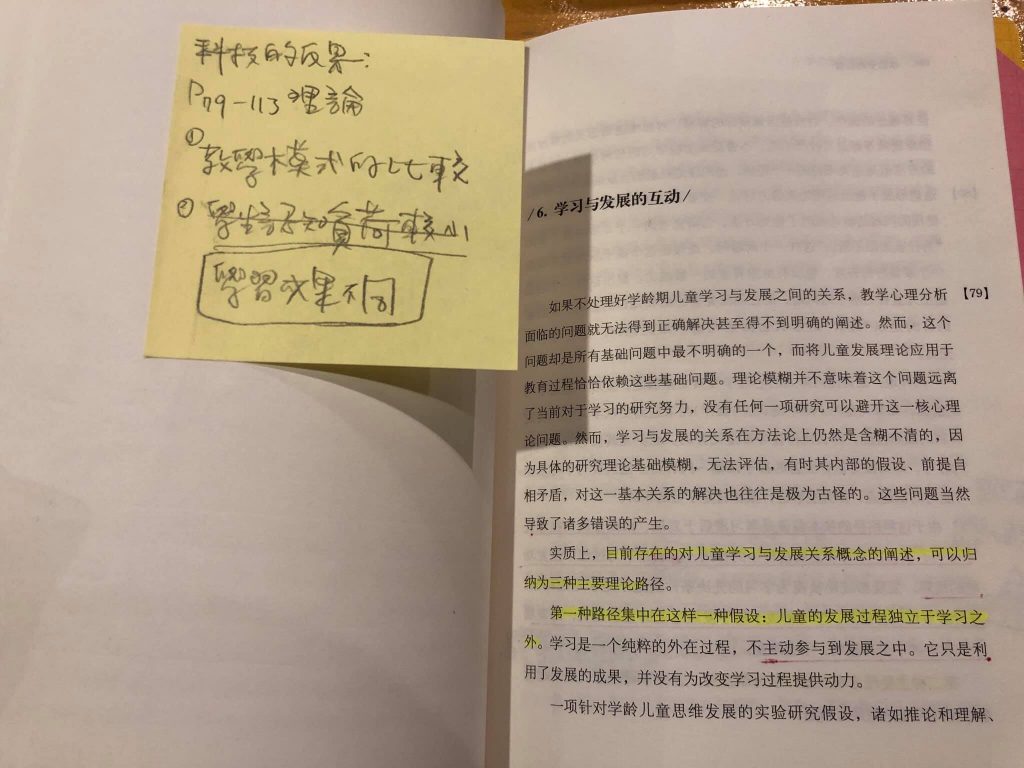 科技的反思：
P79-113 理論
① 教學模式的比較
② 學生認知負荷較小
學習成果不同
/6. 学习与发展的互动/
如果不处理好学龄期儿童学习与发展之间的关系，教学心理分析 【79】
面临的问题就无法得到正确解决甚至得不到明确的阐述。然而，这个
问题却是所有基础问题中最不明确的一个，而将儿童发展理论应用于
教育过程恰恰依赖这些基础问题。理论模糊并不意味着这个问题远离
了当前对于学习的研究努力，没有任何一项研究可以避开这一核心理
论问题。然而，学习与发展的关系在方法论上仍然是含糊不清的，因
为具体的研究理论基础模糊，无法评估，有时其内部的假设、前提自
相矛盾，对这一基本关系的解决也往往是极为古怪的。这些问题当然
导致了诸多错误的产生。
实质上，目前存在的对儿童学习与发展关系概念的阐述，可以归
纳为三种主要理论路径。
第一种路径集中在这样一种假设：儿童的发展过程独立于学习之
外。学习是一个纯粹的外在过程，不主动参与到发展之中。它只是利
用了发展的成果，并没有为改变学习过程提供动力。
一项针对学龄儿童思维发展的实验研究假设，诸如推论和理解、